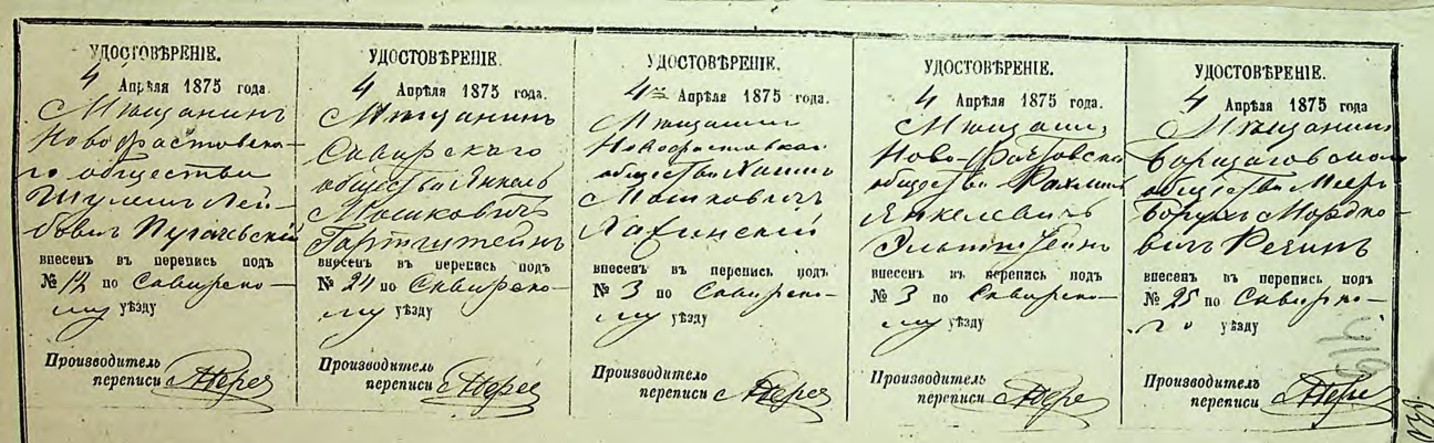 УДОСТОВѢРЕНІЕ.
4 Апрѣля 1875 года.
Мѣщанинъ
Новофастовска-
го общества
Шулимъ Лей-
бовичъ Пугачевскій
внесенъ въ перепись подъ
№ 12 по Сквирско-
му уѣзду
Производитель
переписи
УДОСТОВѢРЕНІЕ.
4 Апрѣля 1875 года.
Мѣщанинъ
Сквирскаго
общества Янкель
Мошковичъ
внесенъ въ перепись подъ
№ 24 по Сквирско-
му уѣзду
Производитель
переписи
УДОСТОВѢРЕНІЕ.
4 Апрѣля 1875 года.
Мѣщанинъ
Новофастовскаго
общества
Мошковичъ
внесенъ въ перепись подъ
№ 3 по Сквирско-
му уѣзду
Производитель
переписи
УДОСТОВѢРЕНІЕ.
4 Апрѣля 1875 года.
Мѣщанинъ
Ново-Фастовскаго
общества Рахмиль
Янкелевичъ
внесенъ въ перепись подъ
№ 3 по Сквирско-
му уѣзду
Производитель
переписи
УДОСТОВѢРЕНІЕ.
4 Апрѣля 1875 года
Мѣщанинъ
общества Мееръ
Борухъ Мордко-
вичъ
внесенъ въ перепись подъ
№ 25 по Сквирско-
уѣзду
Производитель
переписи